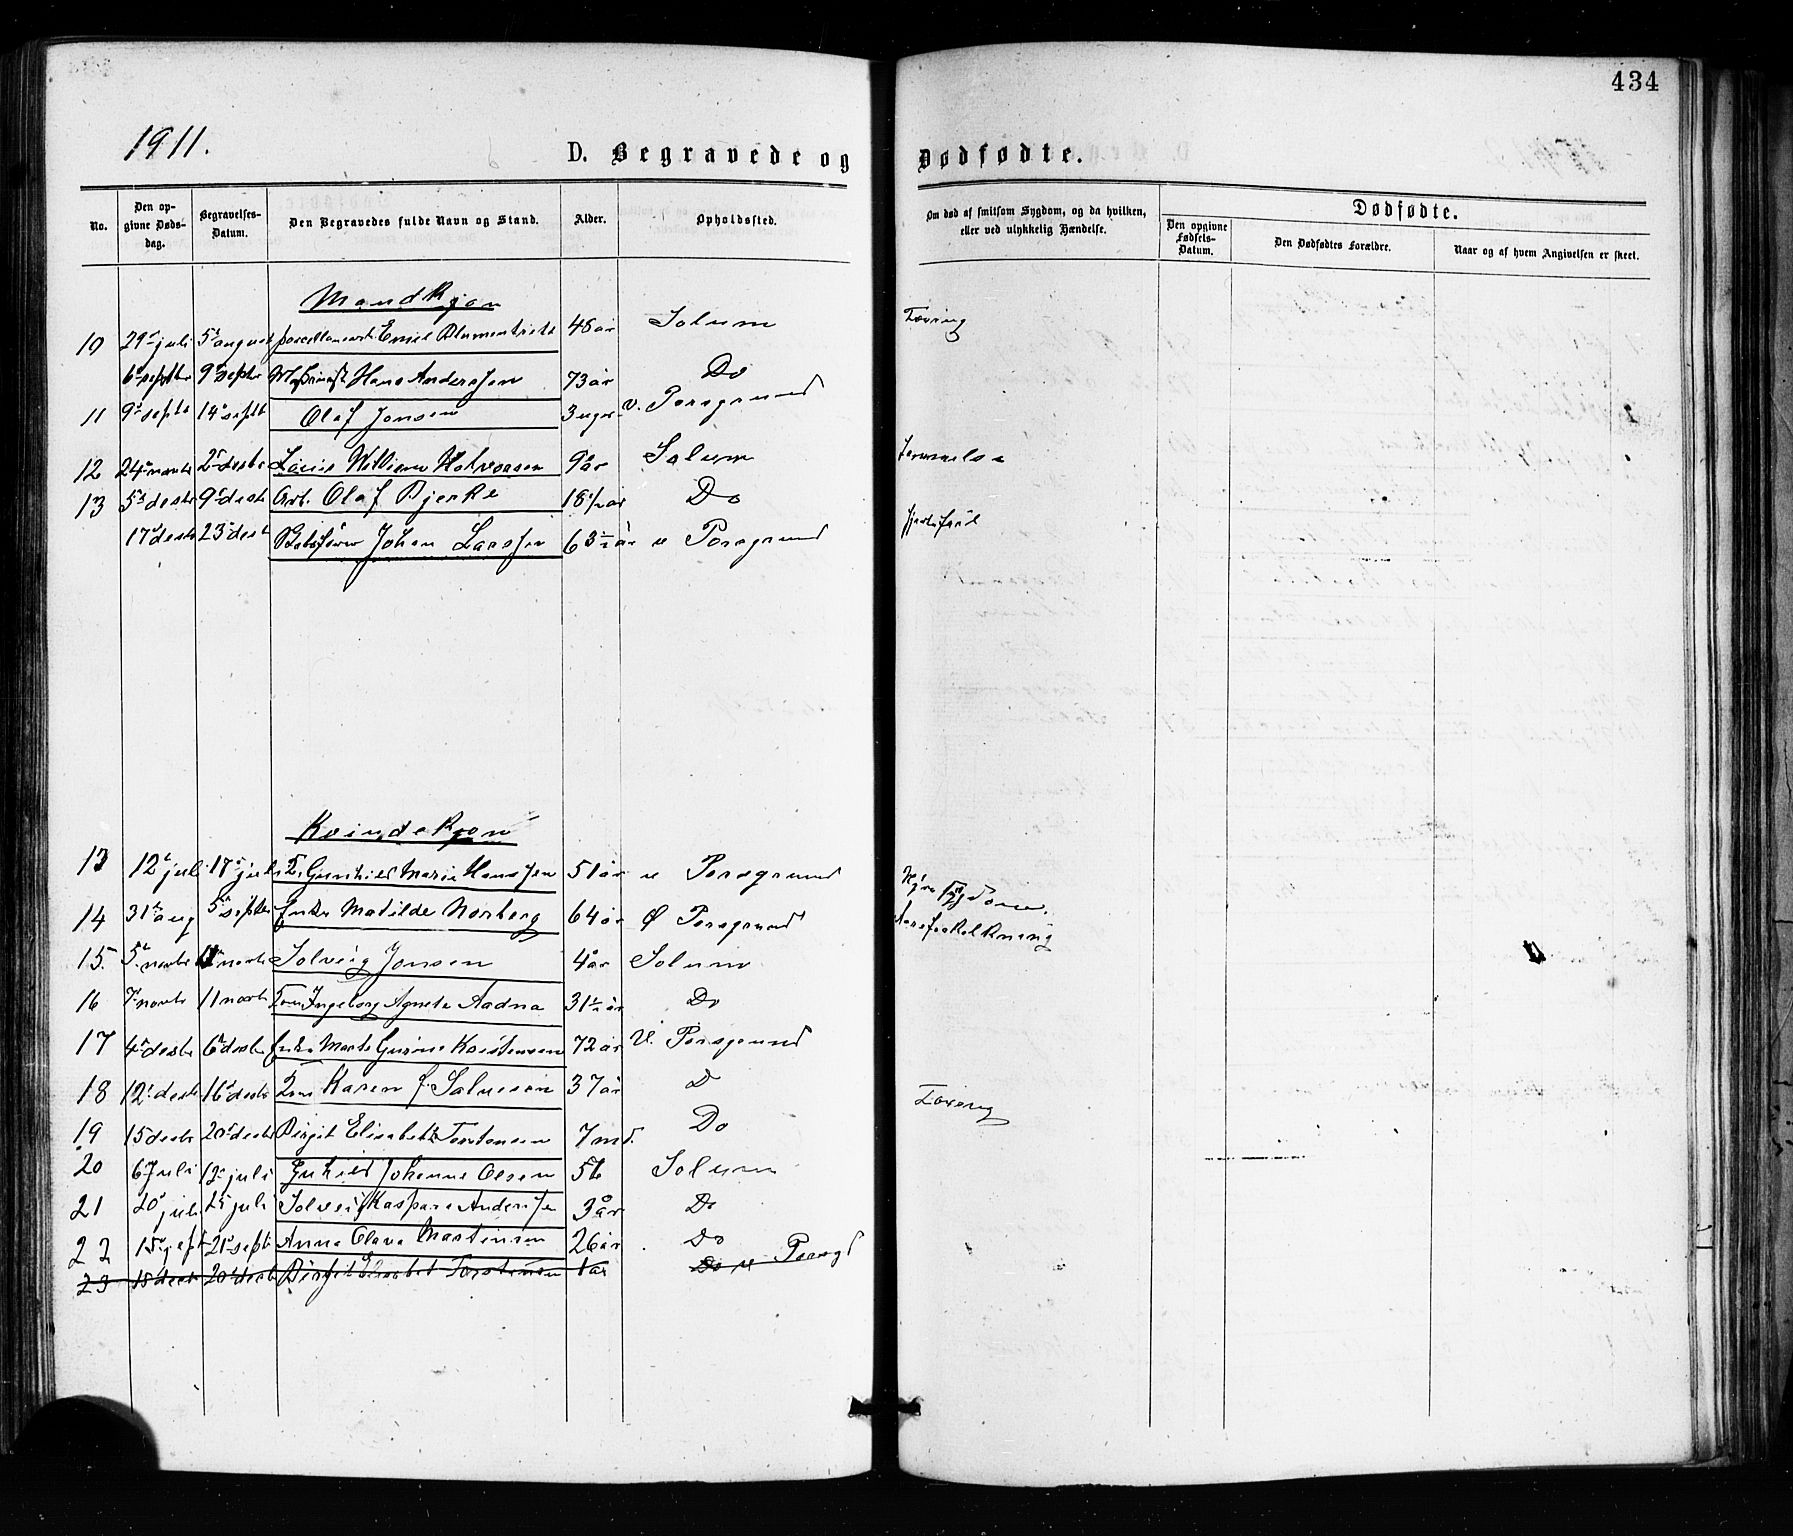 434
1911.
D. Begravede og Dødfødte.
No. Den opgivne Døds-dag. Begravelses-Datum. Den Begravedes fulde Navn og Stand. Alder. Opholdssted. Om død af smitsom Sygdom, og da hvilken, eller ved ulykkelig Hændelse. Dødfødte.
Den opgivne Fødsels-Datum. Den Dødfødtes Forældre. Naar og af hvem Angivelsen er skeet.
Mandkjøn
10 29 juli 5 august Emil Blumentritt 48 år Solum Tæring
6 septbr 9 septbr Hans Anderssen 73 år Do
11 9 septb 14 septb Olaf Jonsen 3 uger V. Porsgrund
12 24 novbr 2 desbr Louis William Halvorsen 9 år Solum
13 5 desbr 9 desb Arb. Olaf Bjerke 18 1/2 år Do
17 desbr 23 desb Johan Larssen 63 1/2 år v Porsgrund Hjertefeil
Kvindekjøn
13 12 juli 17 juli Gunhild Marie Hanssen 51 år v Porsgrund
14 31 aug 5 septbr Enke Matilde Norberg 64 år Ø Porsgrund Aareforkalkning
15. 5 novbr 11 novbr Solveig Jonsen 4 år Solum
16 7 novb 11 novb Ingeborg Agnete Aadna 31 1/2 år Do
17 4 desbr 6 desbr Enke Marte Gurine Karstensen 72 år V. Porsgrund
18 12 desb 16 desb Karen f. Salvesen 37 år D Tæring
19 15 desbr 20 desbr Birgit Elisabeth Torstensen 7 md. Do
20 6 juli 12 juli Gunhild Johanne Olsen 56 Solum
21 20 juli 25 juli Solveig Kaspara Anderssen 3 år Do
22 15 sept 21 septb Anna Olava Martinsen 26 år Do
23 15 desb 20 desb Birgit Elisabet Torstensen 1 år Do v Porsgd